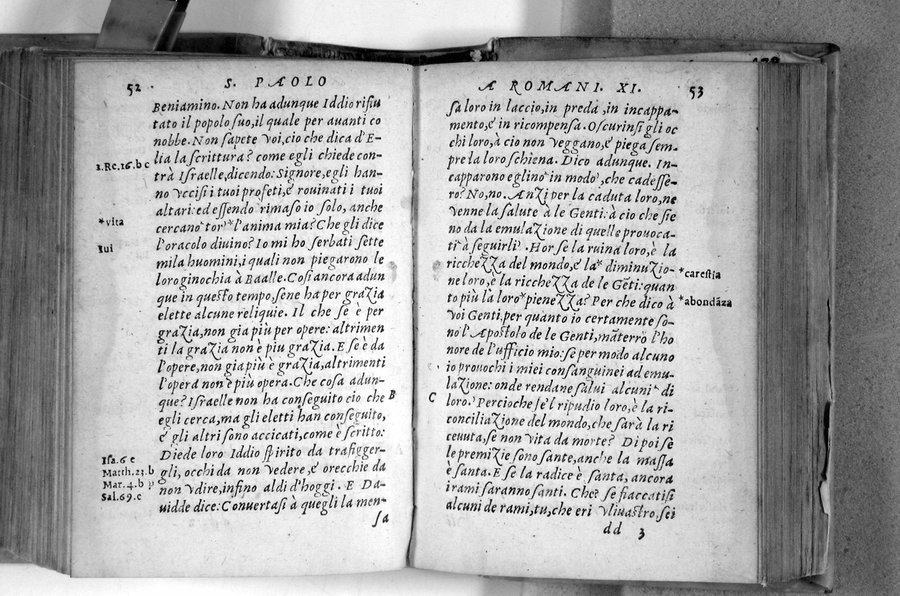 52 S. PAOLO
Beniamino. Non ha adunque Iddio rifiu
tato il popolo suo, il quale per auanti co
nobbe. Non sapete voi, cio che dica d'E-
1.Re.16.b c
lia la scrittura? come egli chiede con-
trà Israelle, dicendo: Signore, egli han-
no vccisi i tuoi profeti, e rouinati i tuoi
altari: ed essendo rimaso io solo, anche
*vita
cercano tor' *l'anima mia? Che gli dice
Iui
l'oracolo diuino? Io mi ho serbati sette
mila huomini, i quali non piegarono le
loro ginochia à Baalle. Cosi ancora adun
que in questo tempo, sene ha per grazia
elette alcune reliquie. Il che se è per
grazia, non gia più per opere: altrimen
ti la grazia non è piu grazia. E se è da
l'opere, non gia più è grazia, altrimenti
l'opera non è più opera. Che cosa adun-
que? Israelle non ha conseguito cio che B
egli cerca, ma gli eletti han conseguito,
e gli altri sono accicati, come è scritto:
Isa.6 c
Diede loro Iddio spirito da trafigger-
Matth.23.b
gli, occhi da non vedere, e orecchie da
Mar.4.b p
non vdire, infino al dì d'hoggi. E Da-
Sal.69.c
uidde dice: Conuertasi à quegli la men-
sa
A ROMANI. XI. 53
sa loro in laccio, in preda, in incappa-
mento, e in ricompensa. Oscurinsi gli oc
chi loro, à cio non veggano, e piega sem-
pre la loro schiena. Dico adunque. In-
capparono eglino in modo, che cadesse-
ro? No, no. Anzi per la caduta loro, ne
venne la salute à le Genti: à cio che sie
no da la emulazione di quelle prouoca-
ti à seguirli. Hor se la ruina loro, è la
ricchezza del mondo, e la *diminuzio- *carestia
ne loro, è la ricchezza de le Gēti: quan
to più la loro *pienezza? Per che dico à *abondāza
voi Genti, per quanto io certamente so-
no l'Apostolo de le Genti, māterrò l'ho
nore de l'ufficio mio: se per modo alcuno
io prouochi i miei consanguinei ad emu-
lazione: onde rendane salui alcuni di
C loro. Percioche se'l ripudio loro, è la ri-
conciliazione del mondo, che sarà la ri
ceuuta, se non vita da morte? Di poi se
le premizie sono sante, anche la massa
è santa. E se la radice è santa, ancora
i rami saranno santi. Che? se fiaccatisi
alcuni de rami, tu, che eri vliuastro, sei
dd 3